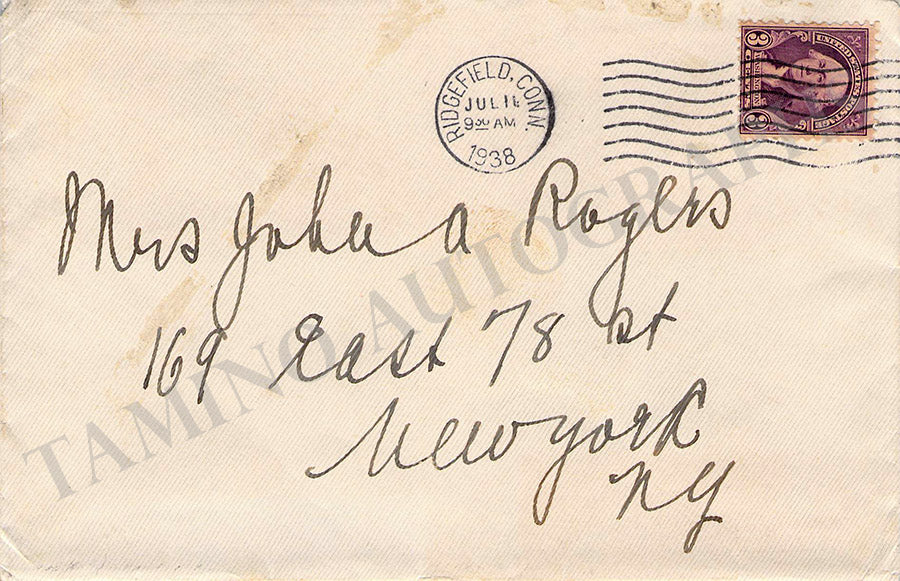 RIDGEFIELD, CONN.
JUL 11
9 30 AM
1938
UNITED STATES POSTAGE
3 3
Mrs John A Rogers
169 East 78 st
New york
NY
TAMINO AUTOGRAPHS